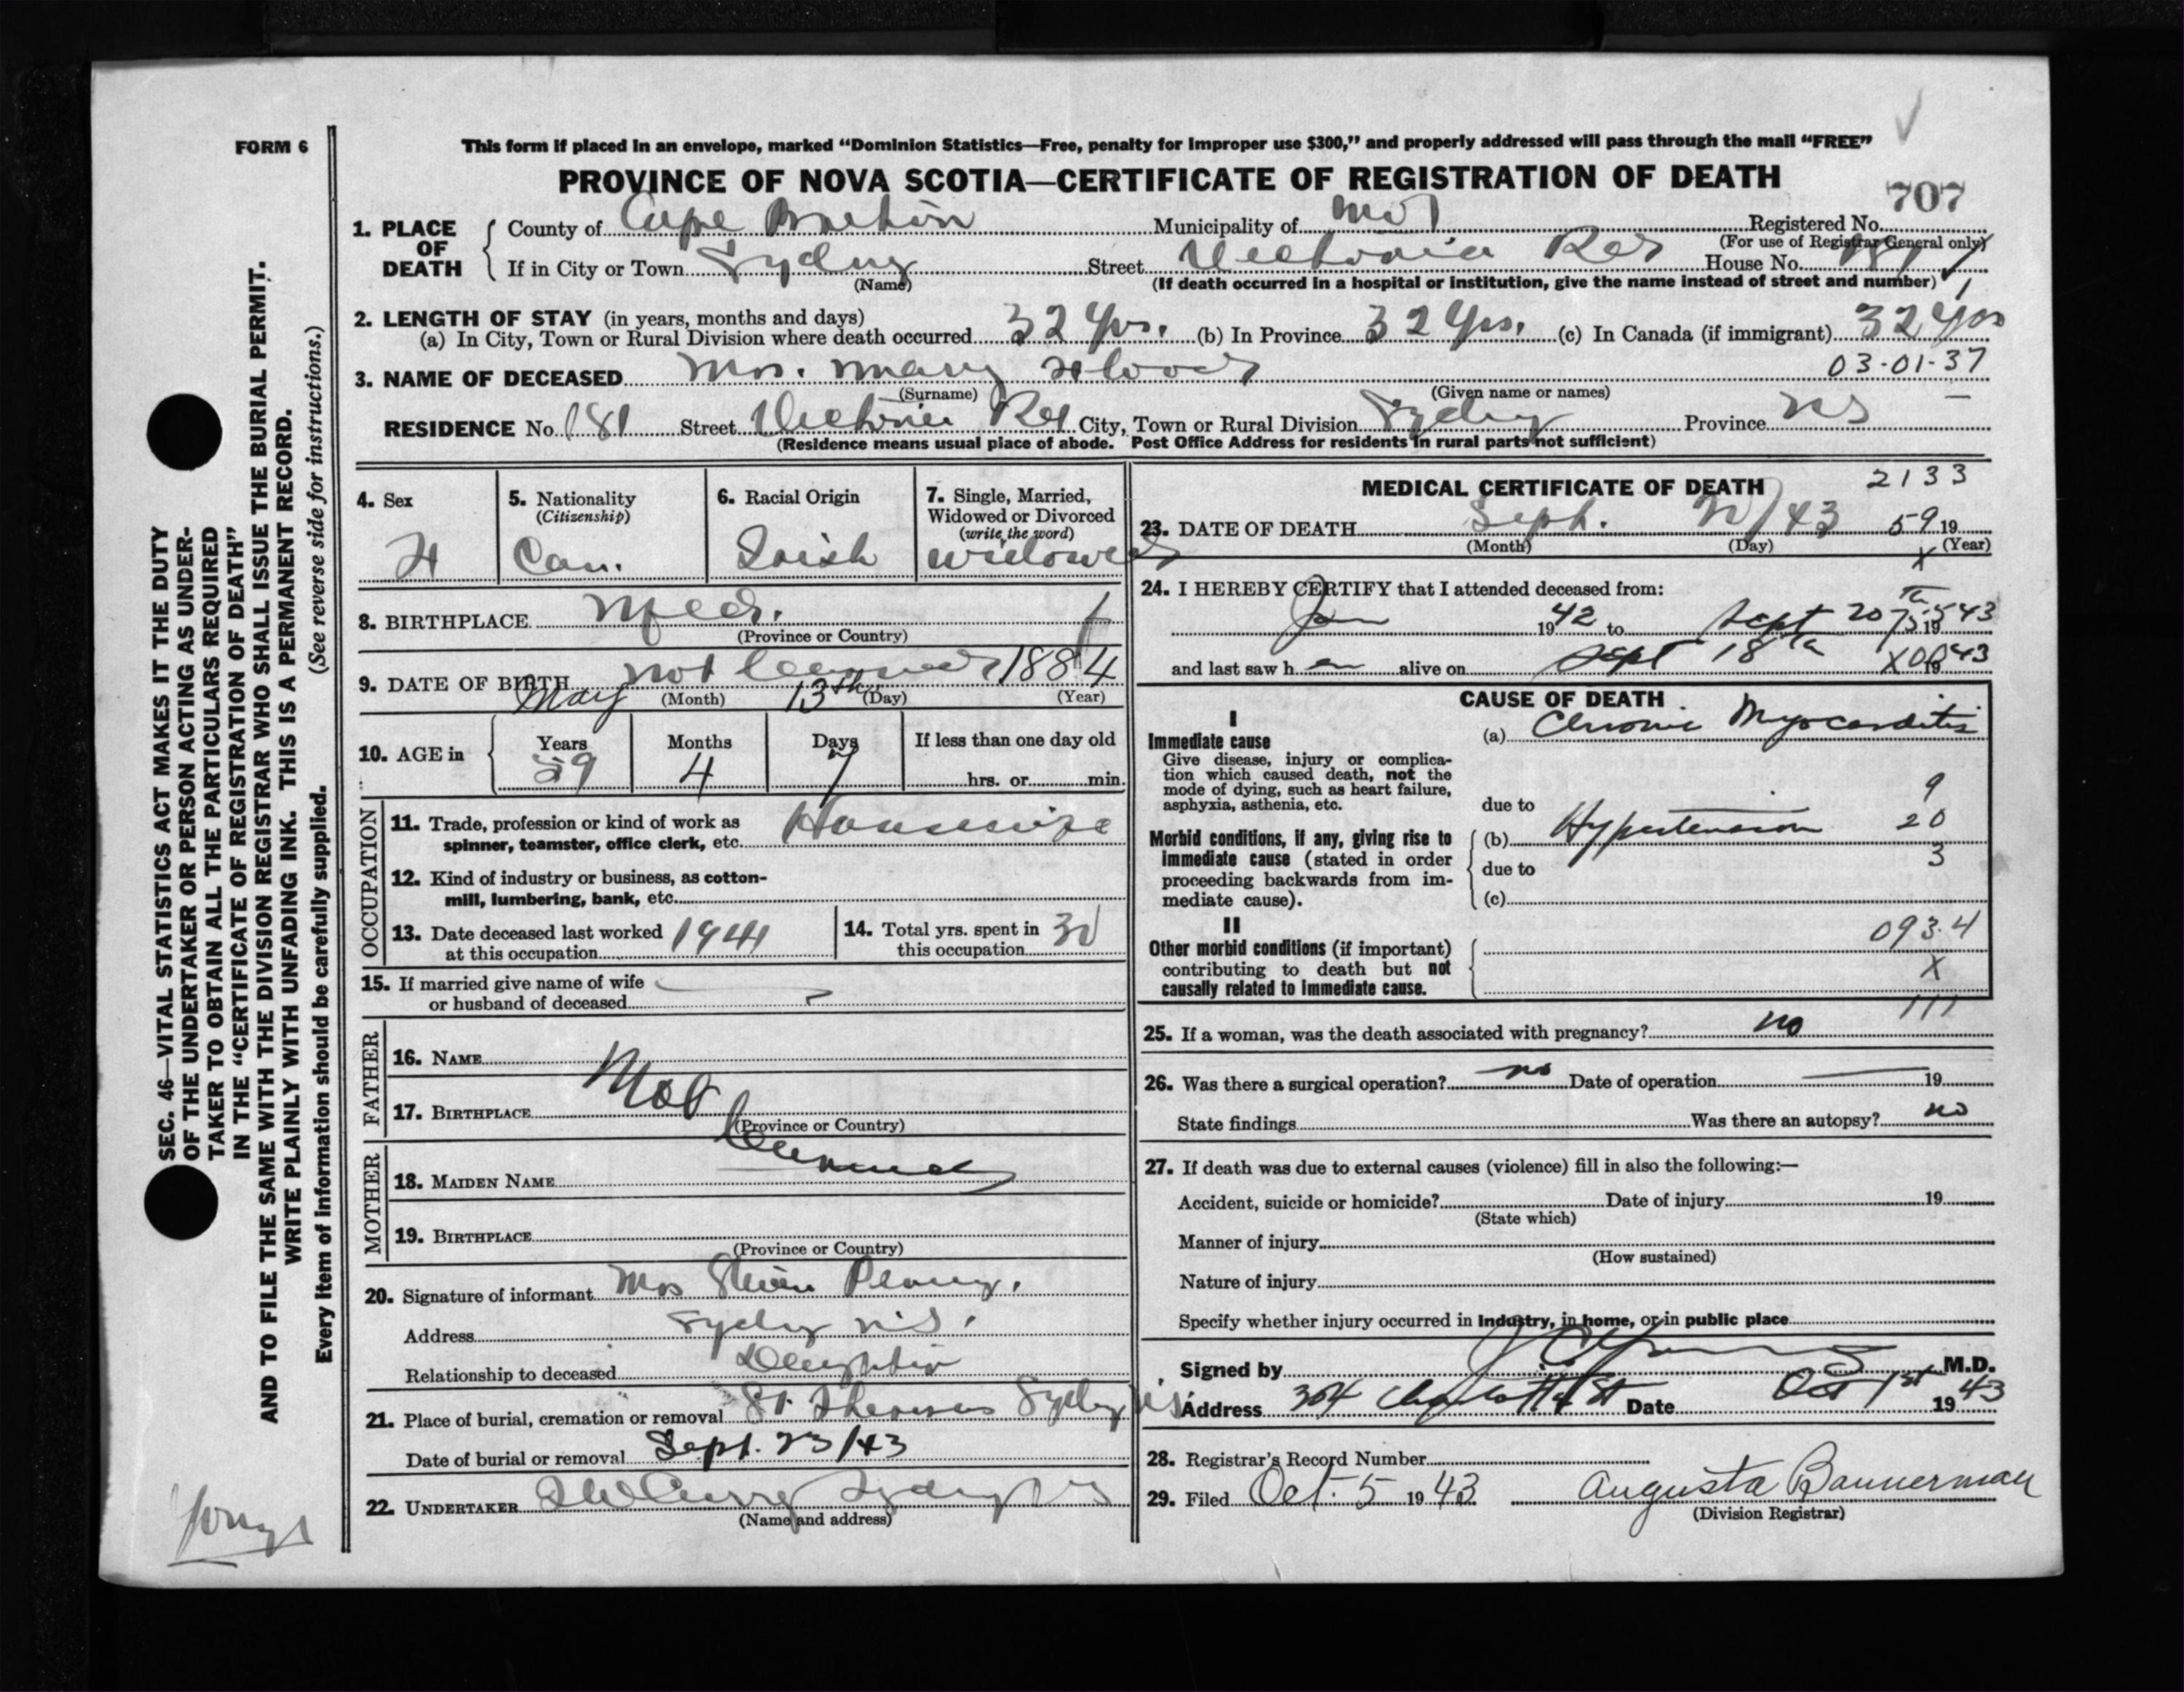 FORM 6
This form if placed in an envelope, marked "Dominion Statistics—Free, penalty for improper use $300," and properly addressed will pass through the mail "FREE"
PROVINCE OF NOVA SCOTIA—CERTIFICATE OF REGISTRATION OF DEATH
707
1. PLACE OF DEATH
County of Cape Breton Municipality of Registered No.
(For use of Registrar General only)
If in City or Town Sydney Street Victoria Rd House No. 181
(Name) (If death occurred in a hospital or institution, give the name instead of street and number)
2. LENGTH OF STAY (in years, months and days)
(a) In City, Town or Rural Division where death occurred 32 yrs. (b) In Province 32 yrs. (c) In Canada (if immigrant) 32 yrs
03-01-37
3. NAME OF DECEASED Mrs. Mary
(Surname) (Given name or names)
RESIDENCE No. 181 Street Victoria Rd City, Town or Rural Division Sydney Province NS
(Residence means usual place of abode. Post Office Address for residents in rural parts not sufficient)
4. Sex F
5. Nationality (Citizenship) Can.
6. Racial Origin Irish
7. Single, Married, Widowed or Divorced (write the word) widowed
8. BIRTHPLACE Nfld.
(Province or Country)
9. DATE OF BIRTH not 1884
May 13th
(Month) (Day) (Year)
10. AGE in Years 59 Months 4 Days 7 If less than one day old
hrs. or min.
OCCUPATION
11. Trade, profession or kind of work as spinner, teamster, office clerk, etc. Housewife
12. Kind of industry or business, as cotton-mill, lumbering, bank, etc.
13. Date deceased last worked at this occupation 1941
14. Total yrs. spent in this occupation 30
15. If married give name of wife or husband of deceased
FATHER
16. NAME
17. BIRTHPLACE
(Province or Country)
Not
MOTHER
18. MAIDEN NAME
19. BIRTHPLACE
(Province or Country)
20. Signature of informant Mrs
Address Sydney N.S.
Relationship to deceased Daughter
21. Place of burial, cremation or removal St. Theresas Sydney NS
Date of burial or removal Sept. 23/43
22. UNDERTAKER Sydney NS
(Name and address)
MEDICAL CERTIFICATE OF DEATH 2133
23. DATE OF DEATH Sept. 20/43 59 19
(Month) (Day) (Year)
X
24. I HEREBY CERTIFY that I attended deceased from:
Jan 1942 to Sept 20th 1943
and last saw her alive on Sept 18th 1943
CAUSE OF DEATH
I
Immediate cause
Give disease, injury or complication which caused death, not the mode of dying, such as heart failure, asphyxia, asthenia, etc.
(a) Chronic Myocarditis
9
due to
Morbid conditions, if any, giving rise to immediate cause (stated in order proceeding backwards from immediate cause).
(b) Hypertension 20
due to 3
(c)
II
Other morbid conditions (if important) contributing to death but not causally related to immediate cause.
093.4
X
111
25. If a woman, was the death associated with pregnancy? no
26. Was there a surgical operation? no Date of operation 19
State findings Was there an autopsy? no
27. If death was due to external causes (violence) fill in also the following:—
Accident, suicide or homicide? Date of injury 19
(State which)
Manner of injury
(How sustained)
Nature of injury
Specify whether injury occurred in industry, in home, or in public place
Signed by M.D.
Address 304 Charlotte St Date Oct 1st 1943
28. Registrar's Record Number
29. Filed Oct. 5 1943 Augusta Bannerman
(Division Registrar)
SEC. 46—VITAL STATISTICS ACT MAKES IT THE DUTY
OF THE UNDERTAKER OR PERSON ACTING AS UNDER-
TAKER TO OBTAIN ALL THE PARTICULARS REQUIRED
IN THE "CERTIFICATE OF REGISTRATION OF DEATH"
AND TO FILE THE SAME WITH THE DIVISION REGISTRAR WHO SHALL ISSUE THE BURIAL PERMIT.
WRITE PLAINLY WITH UNFADING INK. THIS IS A PERMANENT RECORD.
Every item of information should be carefully supplied. (See reverse side for instructions.)